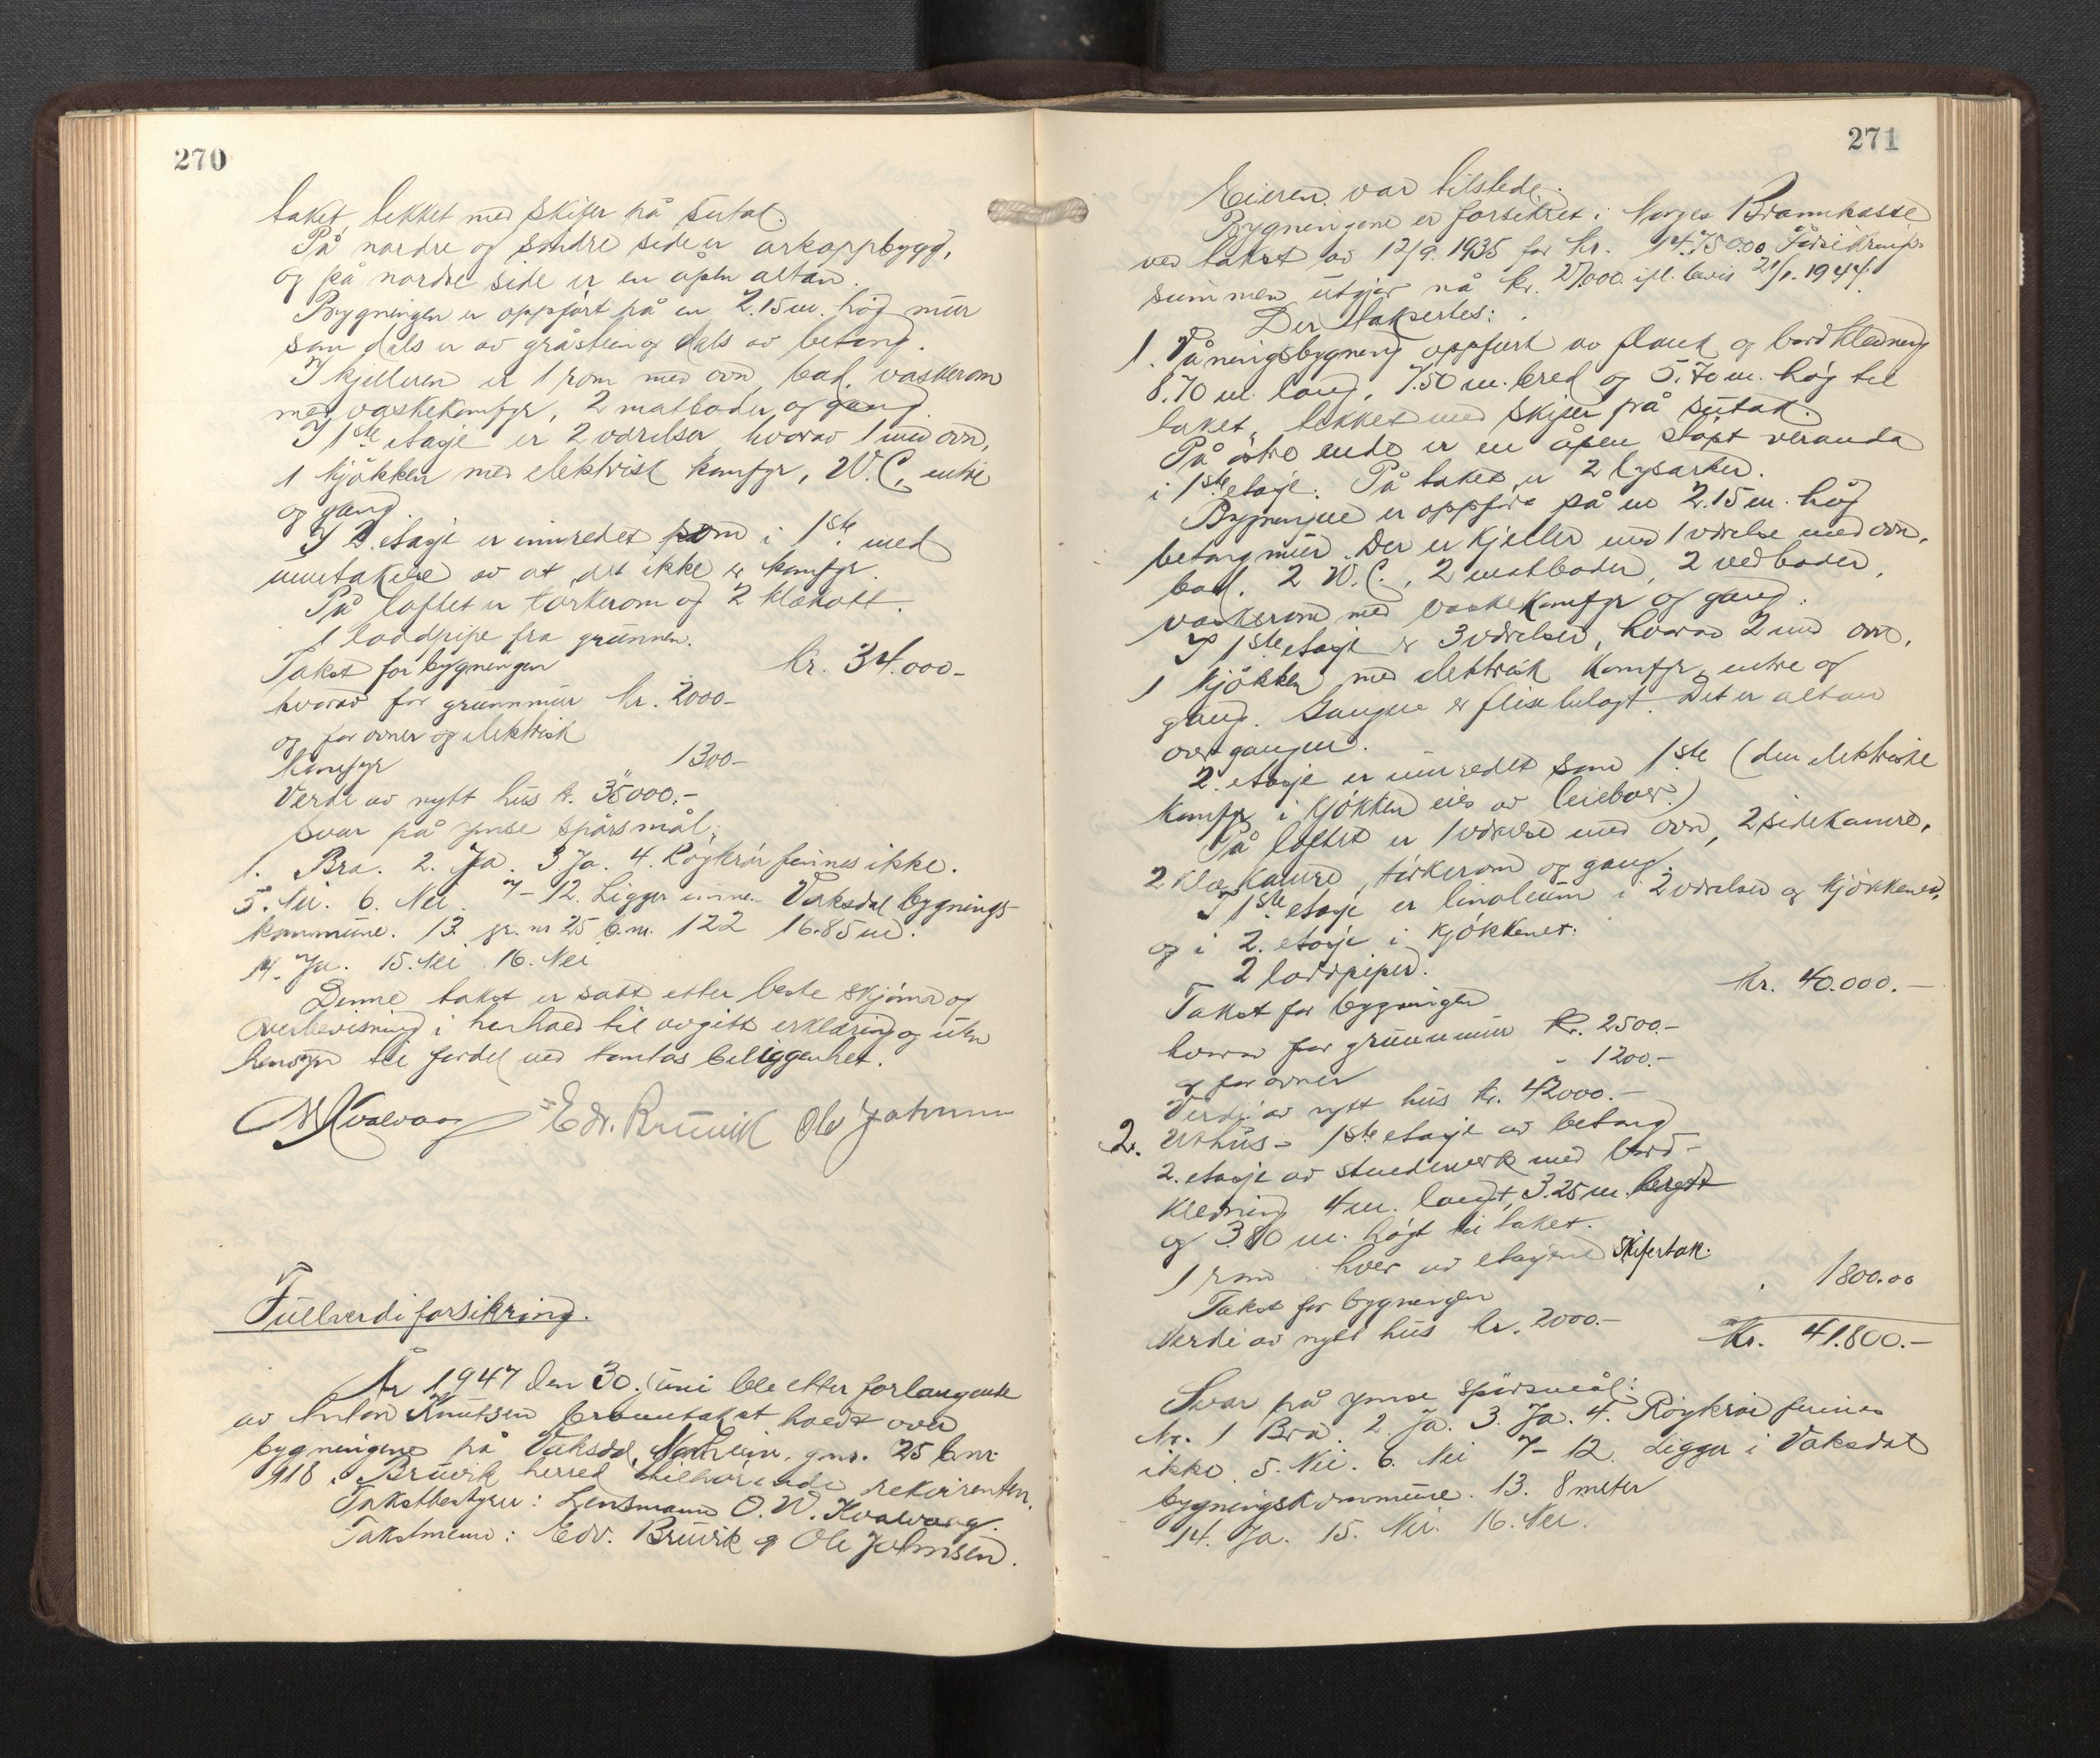 270
taket, tekket med skifer på sutak.
På nordre og søndre side er arkoppbygg,
og på nordre side er en åpen altan.
Bygningen er oppført på en 2.15 m. høg mur
som dels er av gråstein og dels av betong.
I kjelleren er 1 rom med ovn, bad, vaskerom
med vaskekomfyr, 2 matboder og gang.
I 1ste etasje er 2 værelser, hvorav 1 med ovn,
1 kjøkken med elektrisk komfyr, W.C., entre
og gang.
I 2. etasje er innredet som i 1ste med
unntakelse av at det ikke er komfyr.
På loftet er tørkerom og 2 klækott.
1 loddpipe fra grunnen.
Takst for bygningen kr. 34.000-
hvorav for grunnmur kr. 2000-
og for ovner og elektrisk
komfyr " 1300-
Verdi av nytt hus k. 35000.-
Svar på ymse spørsmål:
1. Bra. 2. Ja. 3. Ja. 4. Røykrør finnes ikke.
5. Nei. 6. Nei. 7-12. Ligger innen Vaksdal bygnings-
kommune. 13. gr. nr 25 b.nr. 122 16.85 m.
14. Ja. 15. Nei. 16. Nei
Denne takst er satt etter beste skjønn og
overbevisning i henhold til avgitt erklæring og uten
hensyn til fordel ved tomtas beliggenhet.
OW Kvalvaag Edv. Bruvik Ole Johnsen
Fullverdiforsikring.
År 1947 den 30. juni ble etter forlangende
av Anton Knutsen branntakst holdt over
bygningene på Vaksdal, gnr. 25 bnr.
918 i Bruvik herred tilhørende rekvirenten.
Takstbestyrer: Lensmann O. W. Kvalvaag.
Takstmenn: Edv. Bruvik og Ole Johnsen.
271
Eieren var tilstede.
Bygningene er forsikret i Norges Brannkasse
ved takst av 12/9. 1935 for kr. Forsikrings-
summen utgjør nå kr. 27000 ifl. bevis 21/1. 1944.
Der taksertes:
1. Våningsbygning oppført av plank og bordkledning
8.70 m. lang, 7.50 m. bred og 5.70 m. høg til
taket, tekket med skifer på sutak.
På østre ende er en åpen støpt veranda
i 1ste etasje. På taket er 2 lysarker.
Bygningen er oppført på en 2.15 m. høg
betongmur. Der er kjeller med 1 værelse med ovn,
bad, 2 W.C., 2 matboder, 2 vedboder,
vaskerom med vaskekomfyr og gang.
I 1ste etasje er 3 værelser, hvorav 2 med ovn,
1 kjøkken med elektrisk komfyr, entre og
gang. Gangen er flisebelagt. Det er altan
over gangen.
2. etasje er innredet som 1ste (den elektriske
komfyr i kjøkken eies av leieboer.)
På loftet er 1 værelse med ovn, 2 sidekamre,
2 klækamre, tørkerom og gang.
I 1ste etasje er linoleum i 2 værelser og kjøkkenet,
og i 2. etasje i kjøkkenet.
2 loddpiper.
Takst for bygningen kr. 40.000.-
hvorav for grunnmur kr. 2500.-
og for ovner " 1200.-
Verdi av nytt hus kr. 42000.-
2. Uthus - 1ste etasje av betong
2. etasje av stenderverk med bord-
kledning 4 m. langt, 3.25 m. bredt
og 3.80 m. høgt til taket.
1 rom i hver av etasjene Skifertak.
Takst for bygningen " 1800.00
Verdi av nytt hus kr. 2000.-
Kr. 41.800.-
Svar på ymse spørsmål:
Nr. 1 Bra. 2. Ja. 3. Ja. 4. Røykrør finnes
ikke. 5. Nei. 6. Nei 7-12. Ligger i Vaksdal
bygningskommune. 13. 8 meter
14. Ja. 15. Nei. 16. Nei.